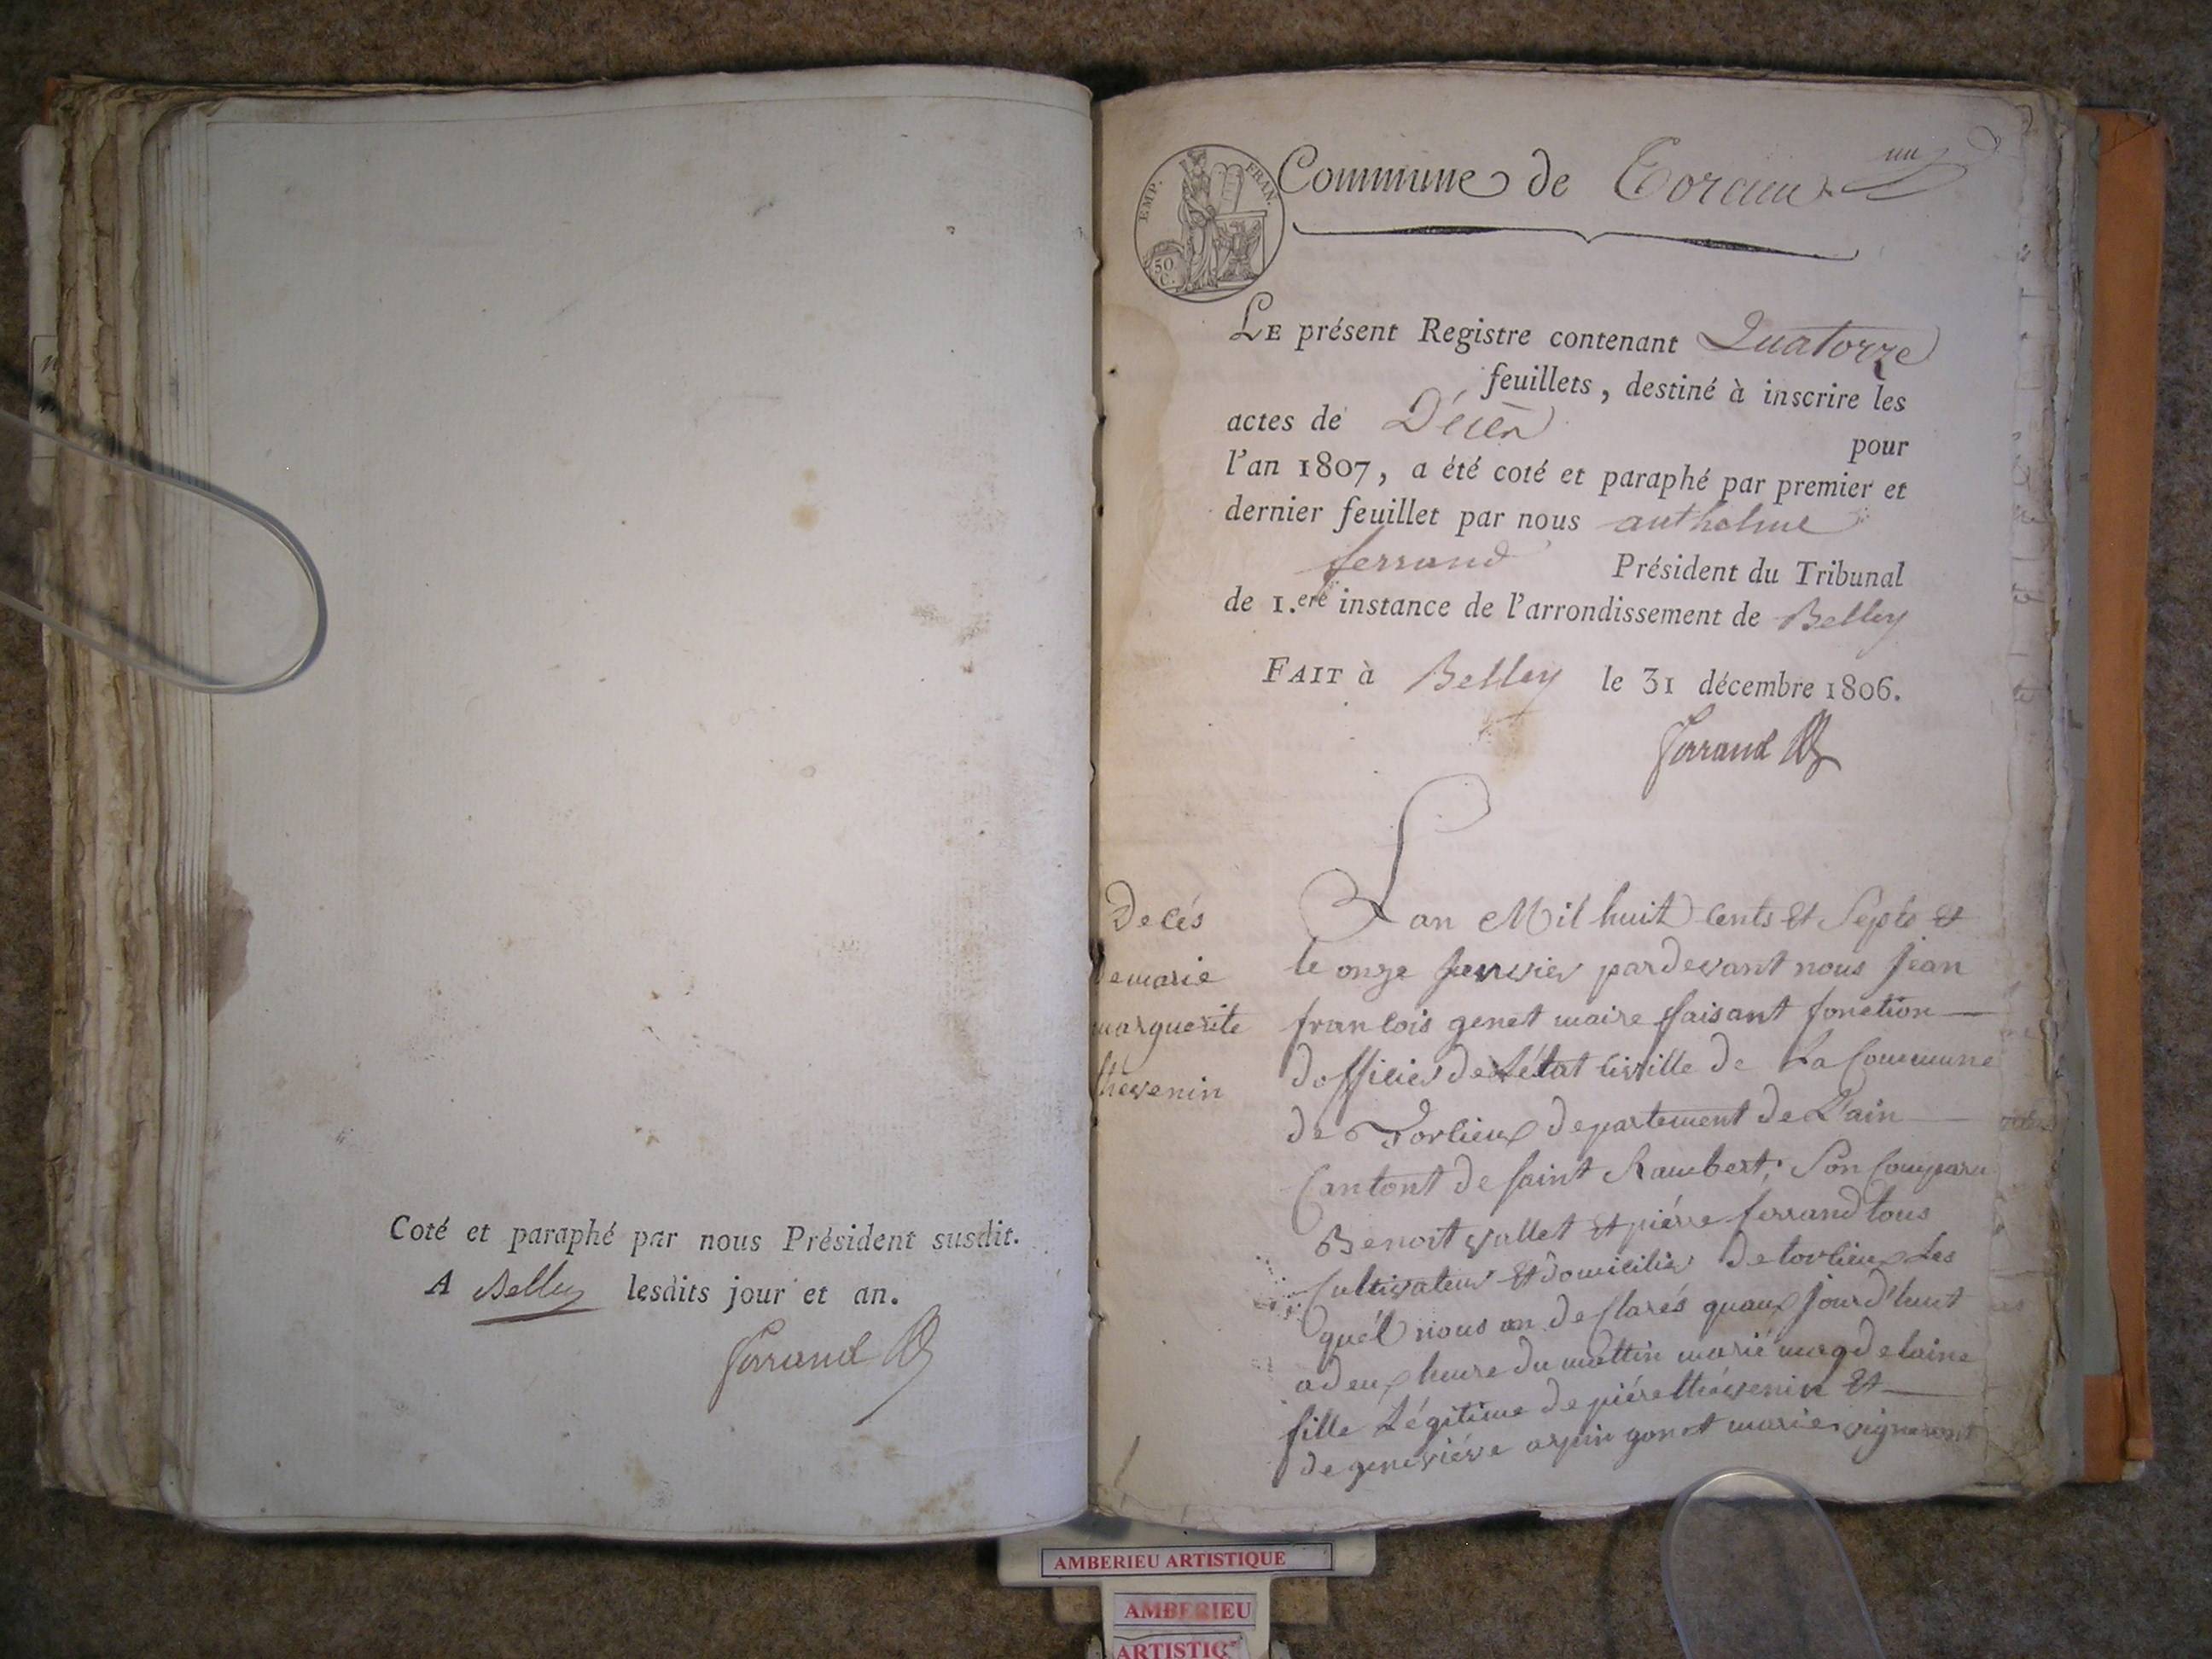 Coté et paraphé par nous Président susdit.
A Belley lesdits jour et an.
Ferrand
EMP. FRAN.
50 C.
un
Commune de Torcieux
LE présent Registre contenant Quatorze
feuillets, destiné à inscrire les
actes de Décès
pour
l'an 1807, a été coté et paraphé par premier et
dernier feuillet par nous anthelme
ferrand Président du Tribunal
de 1.ere instance de l'arrondissement de Belley
FAIT à Belley le 31 décembre 1806.
Ferrand
Decés
de marie
marguerite
thevenin
Lan Mil huit Cents et Septs et
le onze Janvier pardevant nous Jean
francois genet maire faisant fonction
dofficier de Létat civille de La Commune
de Torlieux departement de L'ain
Cantont de saint Rambert. Son Comparu
Benoit vullet et piérre ferrand tous
Cultivateur et domicilier de torlieux Les
quél nous on de Clarés quaux jourd'huit
a deux heure du mattin marié magdelaine
fille Légitime de piére thévenin et
de geneviéve arpin gonet marie vigneront
AMBERIEU ARTISTIQUE
AMBERIEU
ARTISTIQ